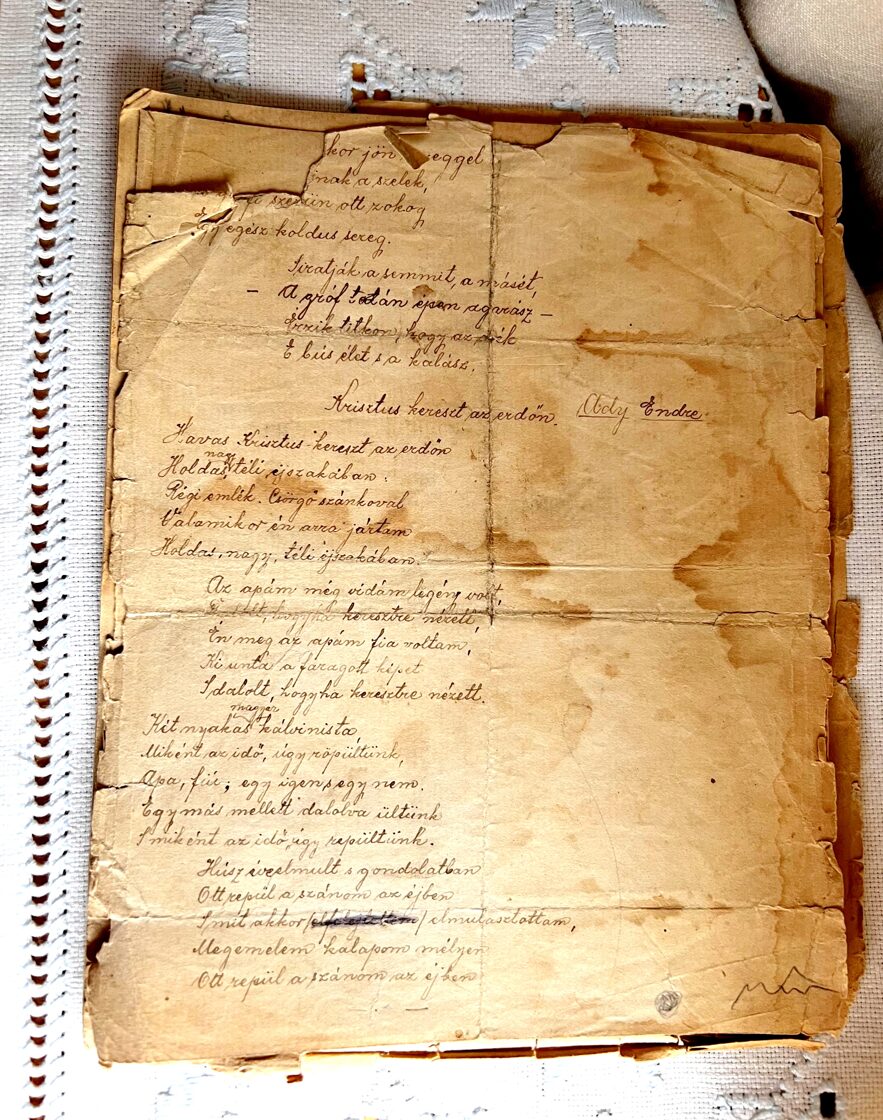 kor jön eggel
nak a szelek,
szerün ott zokog
egy egész koldus sereg.
Siratják a semmit, a másét,
– A gróf talán épen agarász –
Érzik titkon, hogy az övék
E bús élet s a kalász.
Krisztus kereszt az erdőn. Ady Endre.
Havas Krisztus-kereszt az erdőn
Holdas, nagy, téli éjszakában:
Régi emlék. Csörgő szánkoval
Valamikor én arra jártam
Holdas, nagy, téli éjszakában.
Az apám még vidám legény volt,
hogyha keresztre nézett,
Én meg az apám fia voltam,
Ki unta a faragott képet
S dalolt, hogyha keresztre nézett.
Két nyakas magyar kálvinista,
Miként az idő, úgy röpültünk,
Apa, fiú; egy igen s egy nem.
Egymás mellett dalolva ültünk
S miként az idő, úgy repültünk.
Húsz év elmult s gondolatban
Ott repül a szánom az éjben
S mit akkor / / elmulasztottam,
Megemelem kalapom mélyen
Ott repül a szánom az éjben